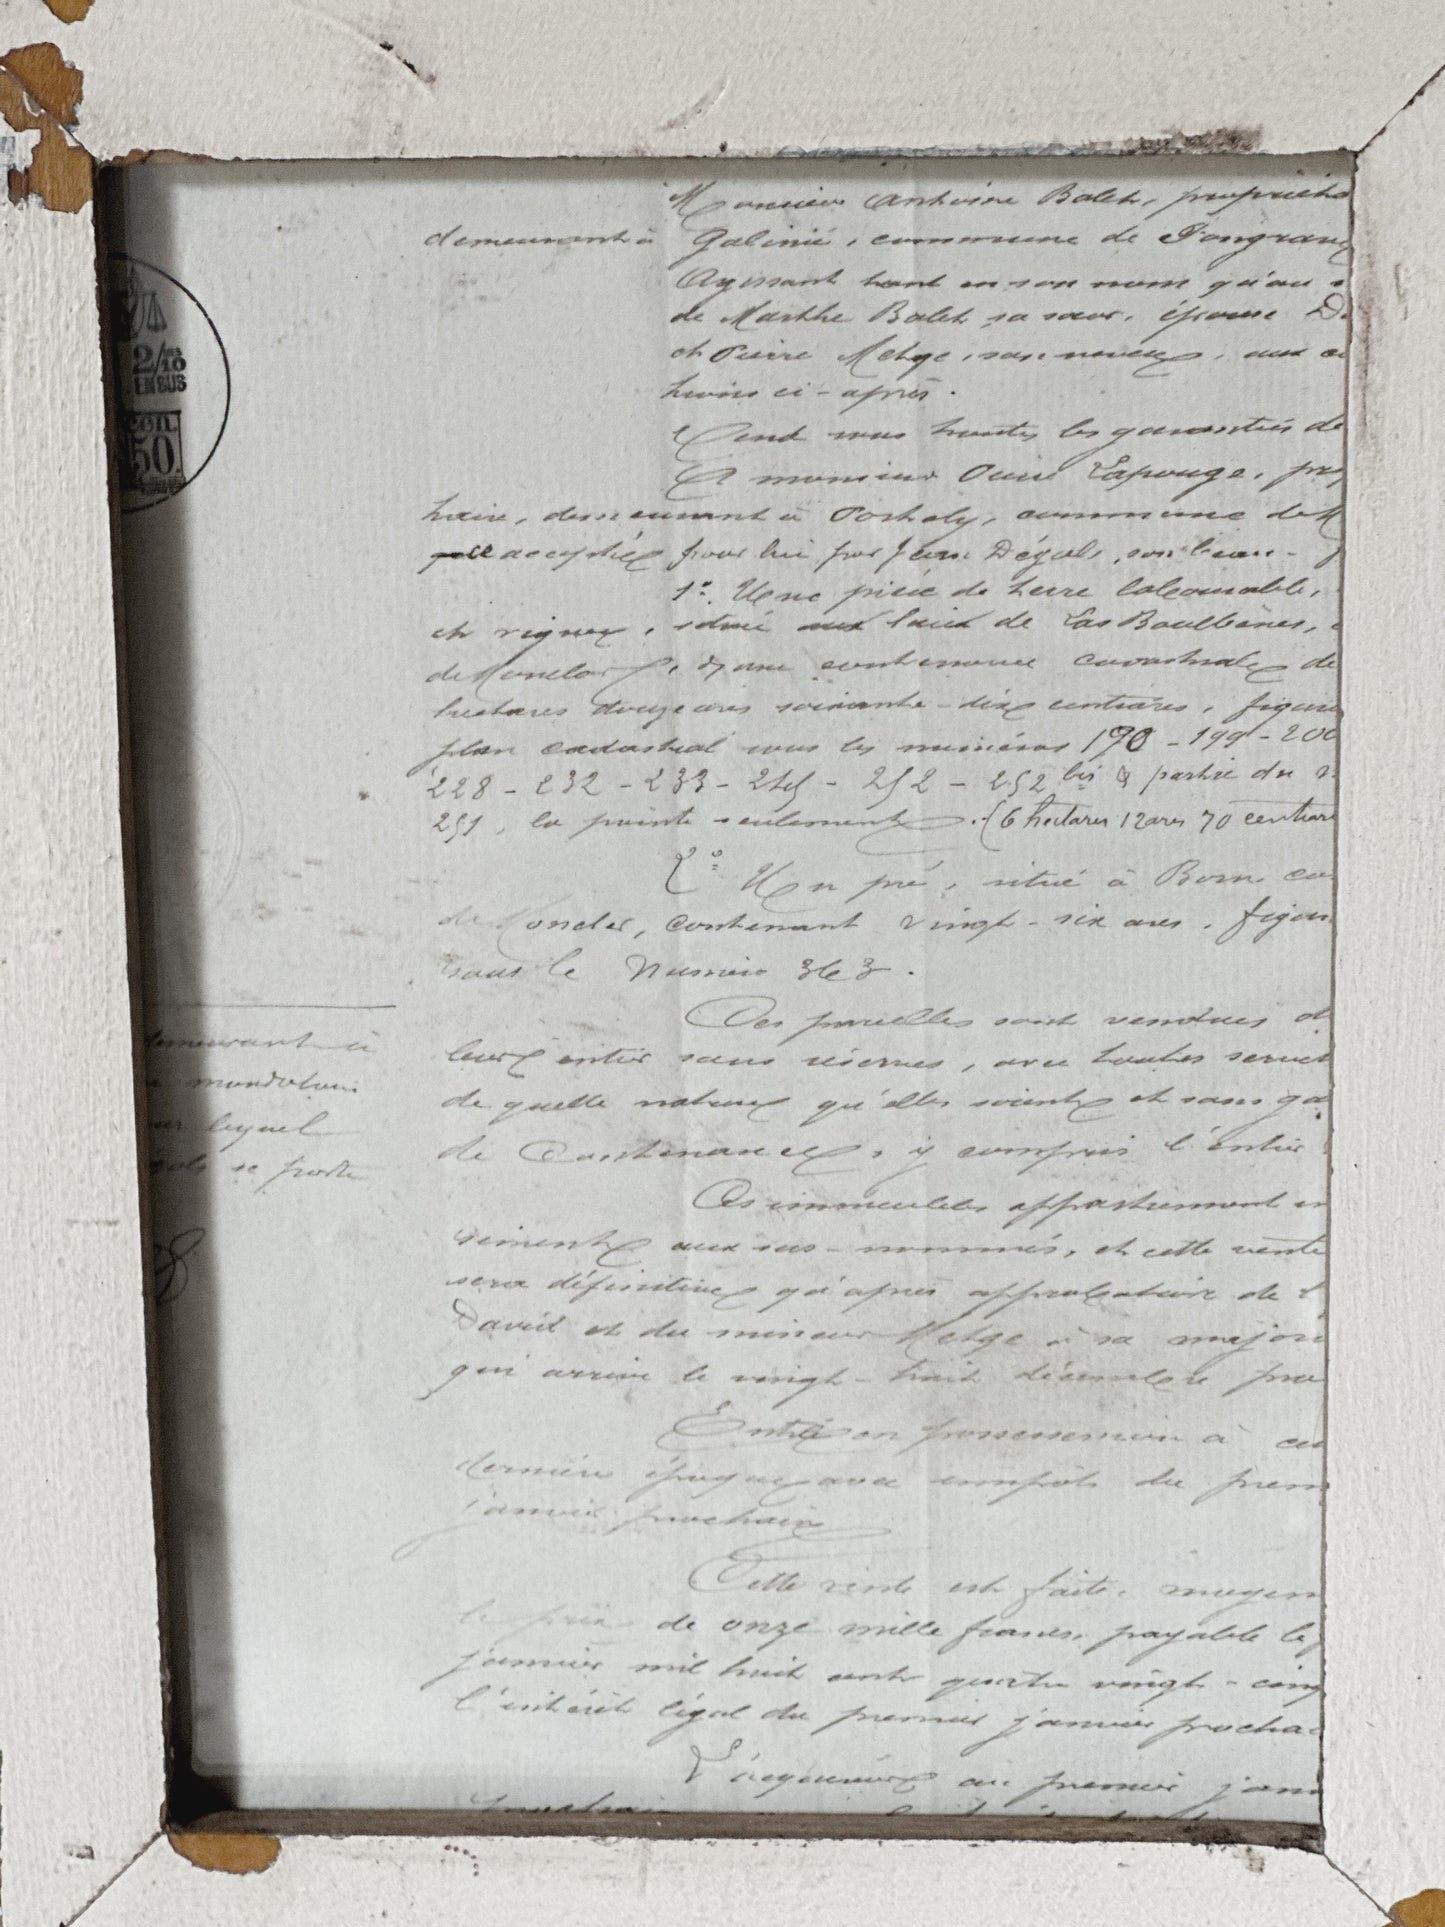 Monsieur Antoine Balet, propriéta
demeurant à Galinié, commune de Fongrave
Agissant tant en son nom qu'au
de Marthe Balet sa sœur, épouse D
et Pierre Metge, son neveu, aux
ci-après.
Vend sous toutes les garanties de
A monsieur Lapouge, pro
taire, demeurant à, commune de M
acceptée pour lui par Jean Dégals, son beau-
1° Une pièce de terre labourable,
et vigne, située aux lieux de Las Boulbènes,
de Monclar, d'une contenance cadastrale de
hectares douze ares soixante-dix centiares, figura
plan cadastral sous les numéros 190-199-200
228-232-233-245-252-252 bis & partie du n
251, la pointe seulement. (6 hectares 12 ares 70 centiare
2° Un pré, situé à Born co
de Monclar, contenant vingt-six ares, figura
sous le Numéro 363.
Ces parcelles sont vendues d
leur entier sans réserves, avec toutes servit
de quelle nature qu'elles soient et sans ga
de Contenance, y compris l'entier
Ces immeubles appartiennent in
aux sus-nommés, et cette vente
sera définitive qu'après approbation de
David et du mineur Metge à sa majori
qui arrive le vingt-huit décembre pro
Entrée en possession à ce
dernière époque avec impôts du prem
janvier prochain
Cette vente est faite, moyen
le prix de onze mille francs, payable le
janvier mil huit cent quatre vingt-cinq
l'intérêt légal du premier janvier procha
L'acquéreur au premier jan
2/10
EN SUS
50
demeurant à
mandataire
lequel
se porte